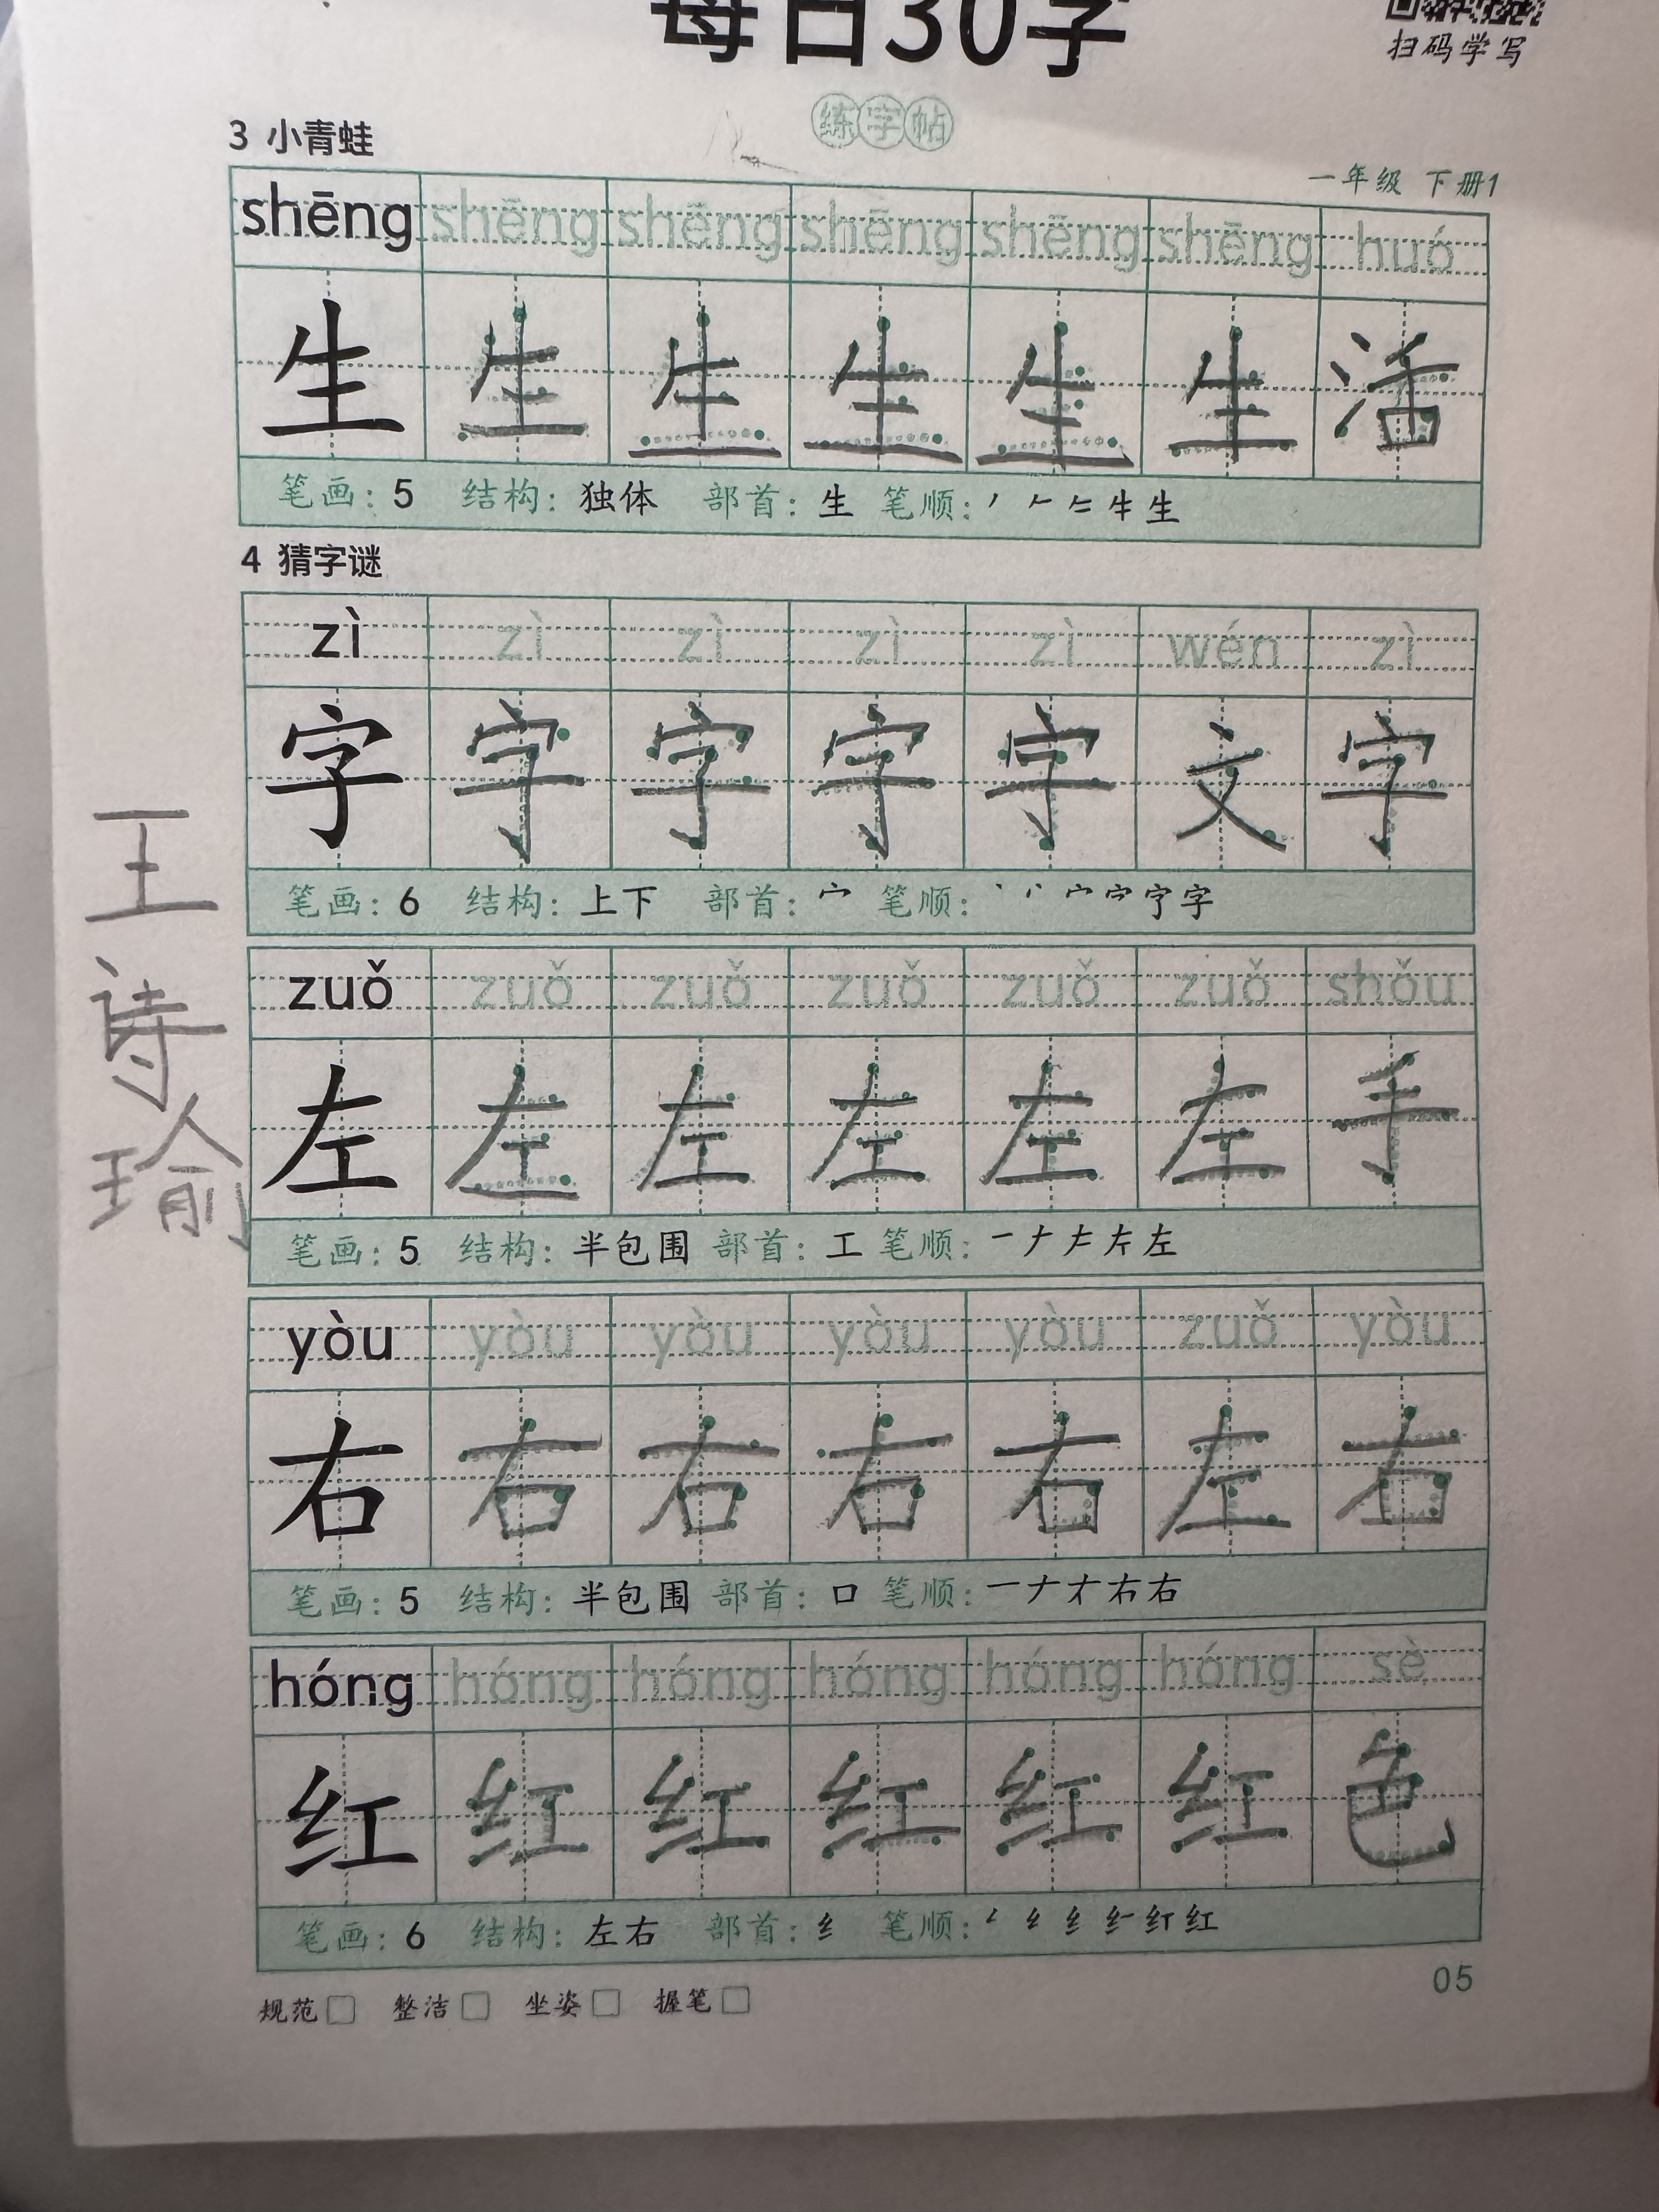 每日30字
扫码学写
练字帖
3 小青蛙
一年级 下册1
shēng shēng shēng shēng shēng shēng huó
生 生 生 生 生 生 活
笔画：5 结构：独体 部首：生 笔顺：丿 𠂉 𠂒 牛 生
4 猜字谜
zì zì zì zì zì wén zì
字 字 字 字 字 文 字
笔画：6 结构：上下 部首：宀 笔顺：丶 丷 宀 字
zuǒ zuǒ zuǒ zuǒ zuǒ zuǒ shǒu
左 左 左 左 左 左 手
笔画：5 结构：半包围 部首：工 笔顺：一 ナ 左
yòu yòu yòu yòu yòu zuǒ yòu
右 右 右 右 右 左 右
笔画：5 结构：半包围 部首：口 笔顺：一 ナ 右
hóng hóng hóng hóng hóng hóng sè
红 红 红 红 红 红 色
笔画：6 结构：左右 部首：纟 笔顺：纟 红
规范 整洁 坐姿 握笔
05
王
诗
瑜